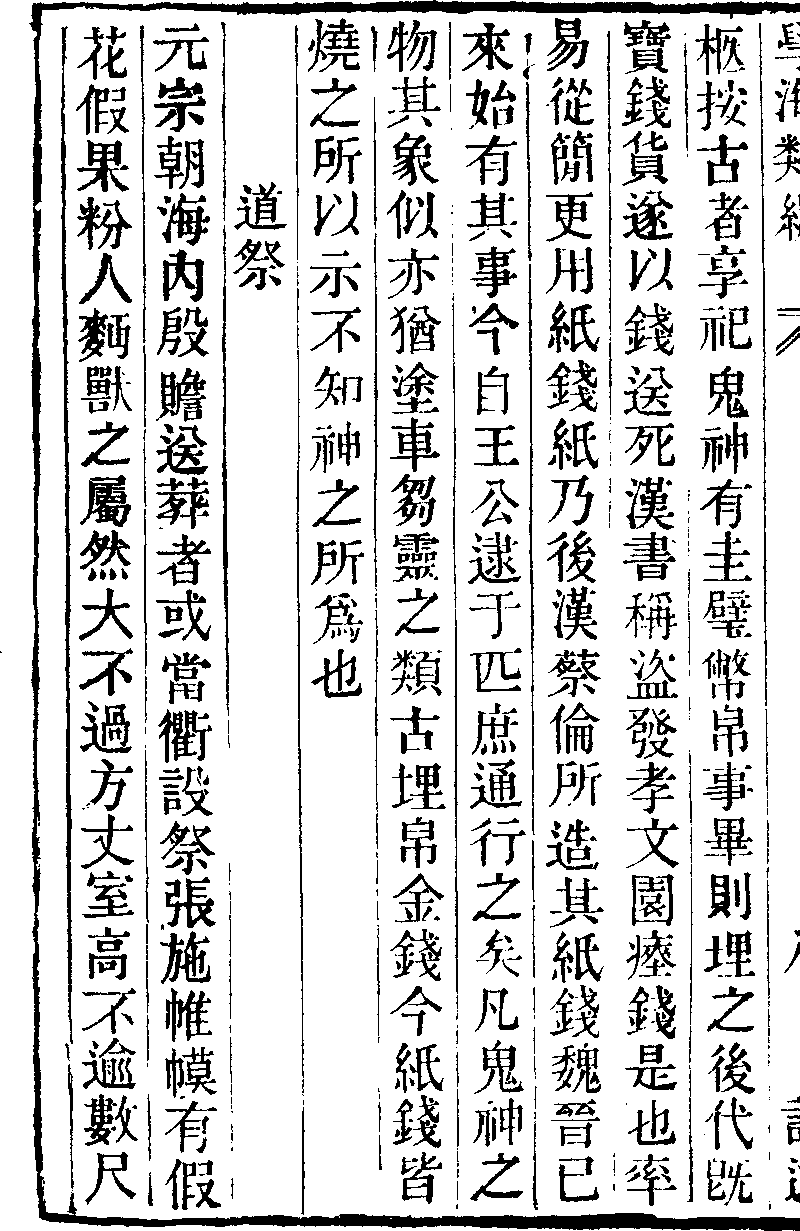 柩按古者享祀鬼神有圭璧幣帛事畢則埋之後代旣
寶錢貨遂以錢送死漢書稱盜發孝文園瘞錢是也率
易從簡更用紙錢紙乃後漢蔡倫所造其紙錢魏晉已
來始有其事今自王公逮于匹庶通行之矣凡鬼神之
物其象似亦猶塗車芻靈之類古埋帛金錢今紙錢皆
燒之所以示不知神之所爲也
道祭
元宗朝海內殷贍送葬者或當衢設祭張施帷幙有假
花假果粉人麵獸之屬然大不過方丈室高不逾數尺